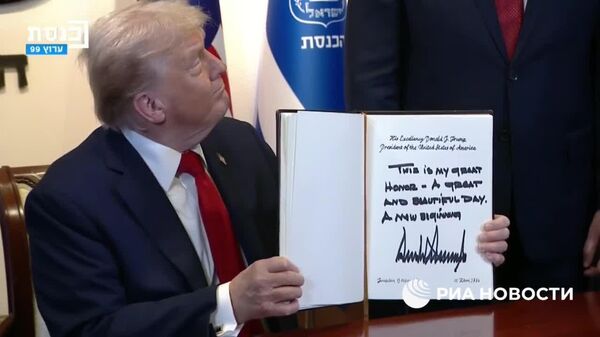 כנסת
ערוץ 99
ישראל
הכנסת
His Excellency Donald J. Trump
President of the United States of America
THIS IS MY GREAT
HONOR - A GREAT
AND BEAUTIFUL DAY.
A NEW BIGINNING
Jerusalem, 13
РИА НОВОСТИ